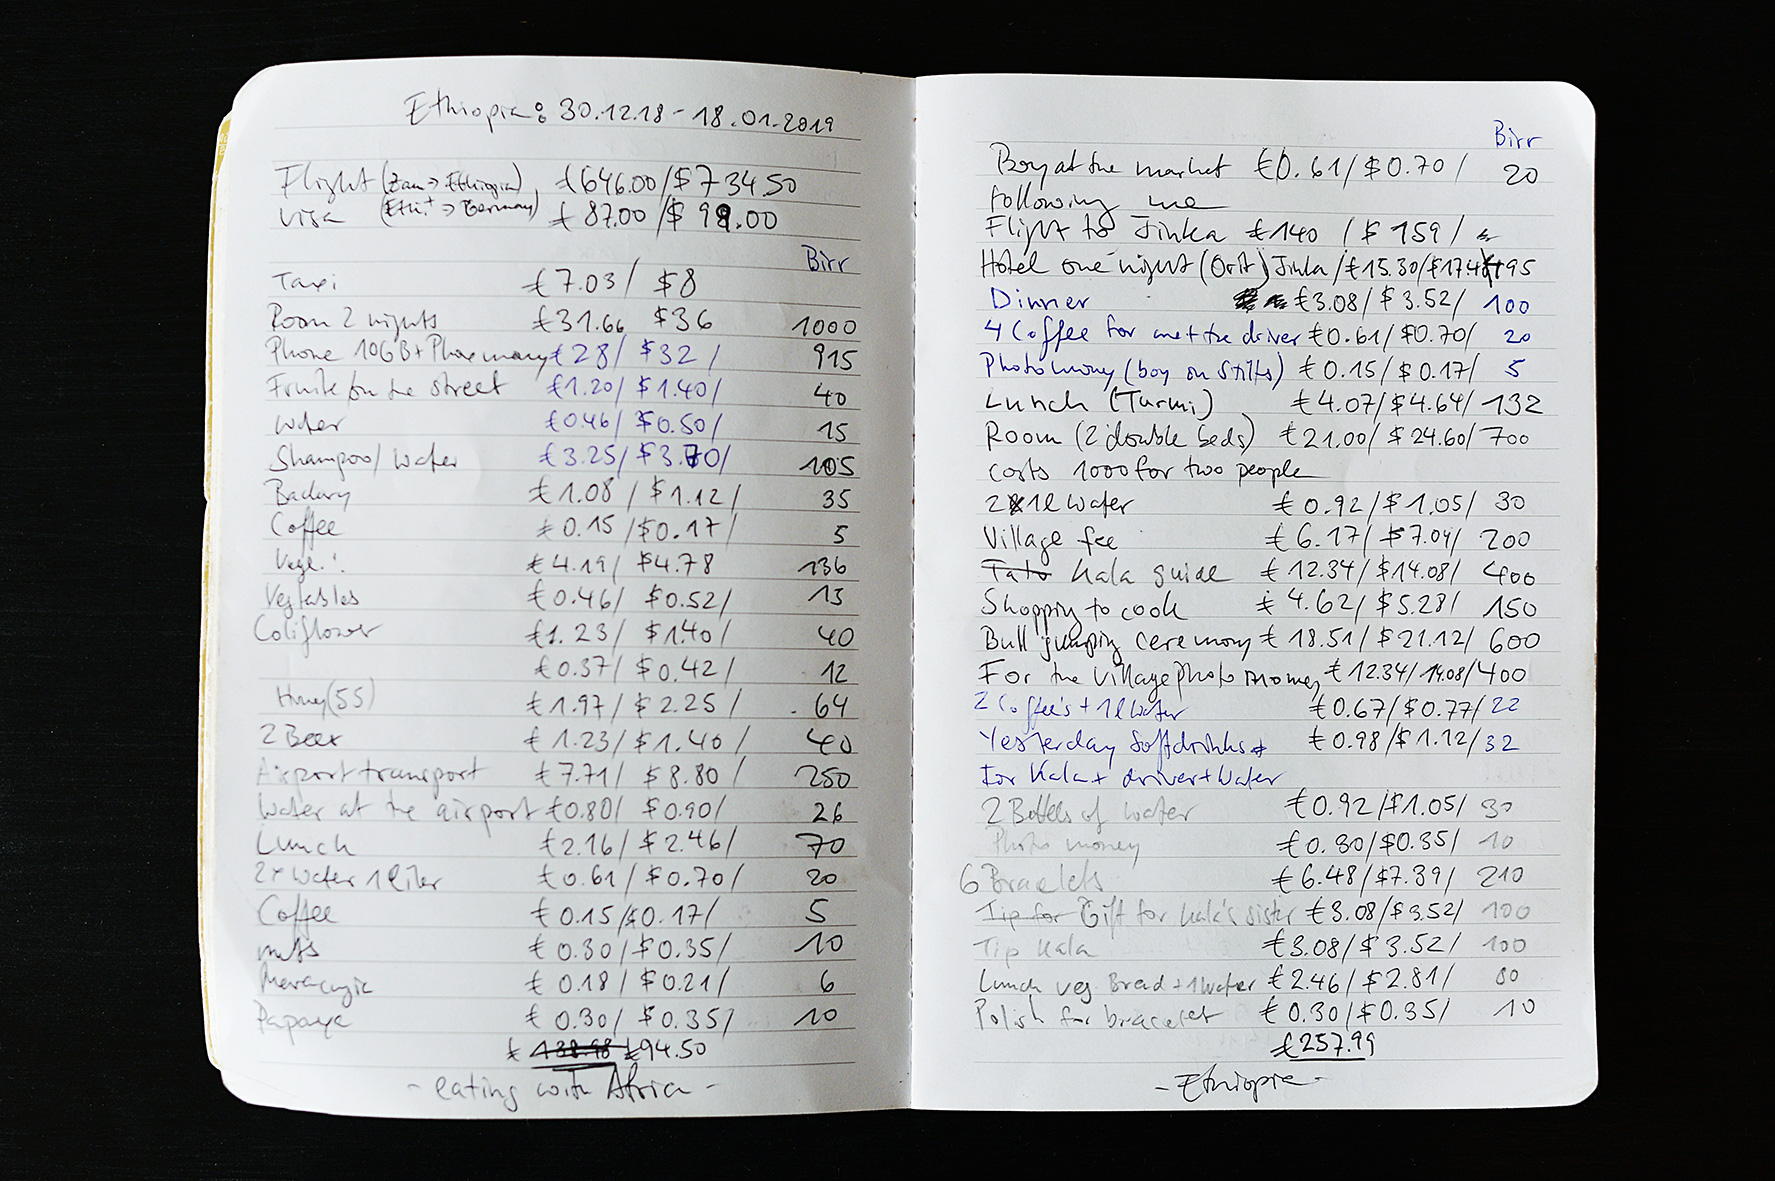 Ethiopia: 30.12.18 - 18.01.2019
Flight (Zan -> Ethiopia), €646.00/$734.50
Visa (Ethi. -> Germany) €87.00/$98.00
Birr
Taxi €7.03/ $8
Room 2 nights €31.66 $36 1000
Phone 10GB + Pharmacy €28/ $32/ 915
Fruits on the street €1.20/ $1.40/ 40
Water €0.46/ $0.50/ 15
Shampoo/Water €3.25/ $3.70/ 105
€1.08/ $1.12/ 35
Coffee €0.15/$0.17/ 5
€4.19/ $4.78 136
Vegtables €0.46/ $0.52/ 15
Coliflower €1.23/ $1.40/ 40
€0.37/ $0.42/ 12
€1.97/ $2.25/ 64
2 Beer €1.23/ $1.40/ 40
Airport transport €7.71/ $8.80/ 250
Water at the airport €0.80/ $0.90/ 26
Lunch €2.16/ $2.46/ 70
2x Water 1liter €0.61/ $0.70/ 20
Coffee €0.15/$0.17/ 5
nuts €0.30/$0.35/ 10
Maracuja €0.18/$0.21/ 6
Papaya €0.30/ $0.35/ 10
€ 138.98 €94.50
- eating with Africa -
Birr
Boy at the market €0.61/$0.70/ 20
following me
Flight to Jinka €140 / $159/
Hotel one night (Orit) Jinka/€15.30/$17.48/495
Dinner €3.08/$3.52/ 100
4 Coffee for me + the driver €0.61/$0.70/ 20
Photo mony (boy on stilts) €0.15/$0.17/ 5
Lunch (Turmi) €4.07/$4.64/ 132
Room (2 double beds) €21.00/$24.60/700
costs 1000 for two people
2x1l Water €0.92/$1.05/ 30
Village fee €6.17/$7.04/ 200
Tato Kala guide €12.34/$14.08/ 400
Shopping to cook €4.62/$5.28/ 150
Bull jumping ceremony €18.51/$21.12/ 600
For the village photo money €12.34/14.08/400
2 Coffee's + 1l Water €0.67/$0.77/22
Yesterday Softdrinks €0.98/$1.12/32
for Kala + driver + Water
2 Bottels of water €0.92/$1.05/ 30
Photo money €0.30/$0.35/ 10
6 Bracelets €6.48/$7.39/ 210
Tip for Gift for Kala's sister €3.08/$3.52/ 100
Tip Kala €3.08/$3.52/ 100
Lunch veg. Bread + 1 Water €2.46/$2.81/ 80
Polish for bracelet €0.30/$0.35/ 10
€257.99
- Ethiopia -